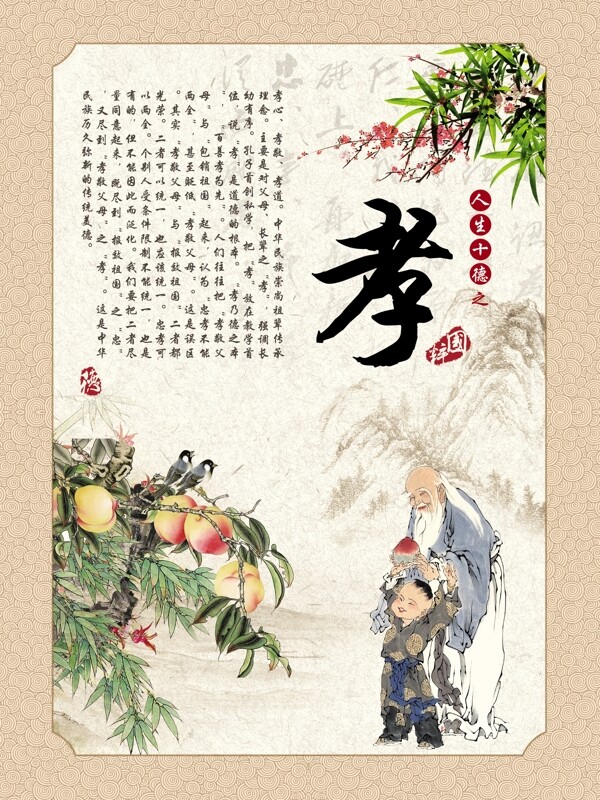 人生十德之
孝
国粹
孝心、孝敬、孝道。中华民族崇尚祖辈传承
理念。主要是对父母、长辈之“孝”。强调长
幼有序。孔子首创私学，把“孝”放在教学首
位，说“孝”是道德的根本。“孝乃德之本
”，“百善孝为先”。人们往往把“孝敬父
母”与“包销祖国”起来，认为“忠孝不能
两全”甚至贬低“孝敬父母”。这是误区
。其实“孝敬父母”与“报效祖国”二者都
光荣。二者可以统一，也应该统一。忠孝可
以两全。个别人受条件限制不能统一，也是
有的，但不能因此而泛化。我们要把二者尽
量同意起来，既尽到“报效祖国”之“忠”
，又尽到“孝敬父母”之“孝”。这是中华
民族历久弥新的传统美德。
德